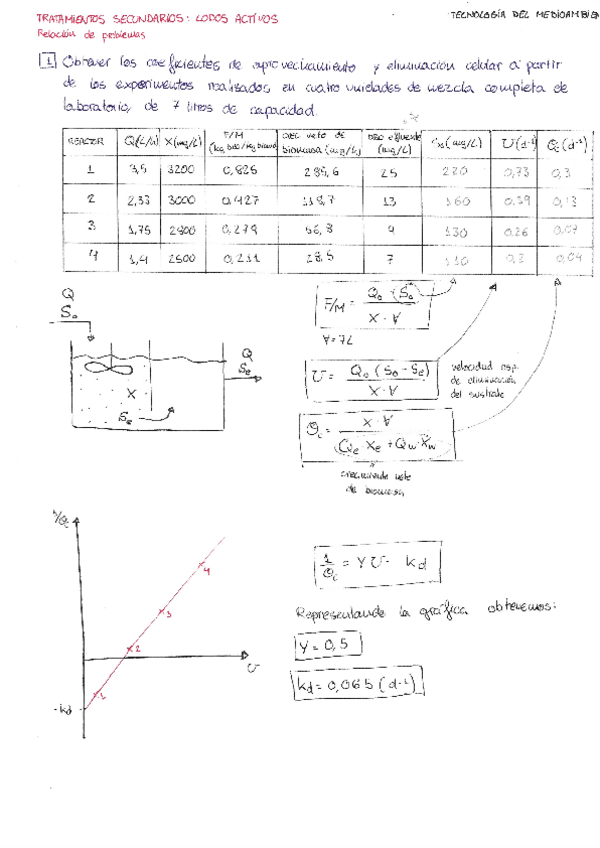 TRATAMIENTOS SECUNDARIOS: LODOS ACTIVOS
TECNOLOGÍA DEL MEDIOAMBIEN
Relación de problemas
1 Obtener los coeficientes de aprovechamiento y eliminación celular a partir
de los experimentos realizados en cuatro unidades de mezcla completa de
laboratorio, de 7 litros de capacidad.
REACTOR Q(L/d) X(mg/L) F/M (kg DBO/kg biomasa) biomasa (mg/L) DBO efluente (mg/L) So(mg/L) U(d⁻¹) (d⁻¹)
1 3,5 3200 0,825 285,6 25 220 0,73 0,3
2 2,33 3000 0,427 118,7 13 160 0.39 0,13
3 1,75 2800 0,279 56,8 9 130 0.26 0.07
4 1,4 2500 0,211 28,5 7 110 0,3 0,04
Q
So
Q
Se
X
Se
F/M = Qo · (So) / X · V
V = 7L
U = Qo (So - Se) / X · V
velocidad esp.
de eliminación
del sustrato
θc = X · V / Qe Xe + Qw Xw
crecimiento neto
de biomasa
1/θc
4
3
2
1
U
-kd
1/θc = Y U - kd
Representando la gráfica obtenemos:
Y = 0,5
kd = 0,065 (d⁻¹)